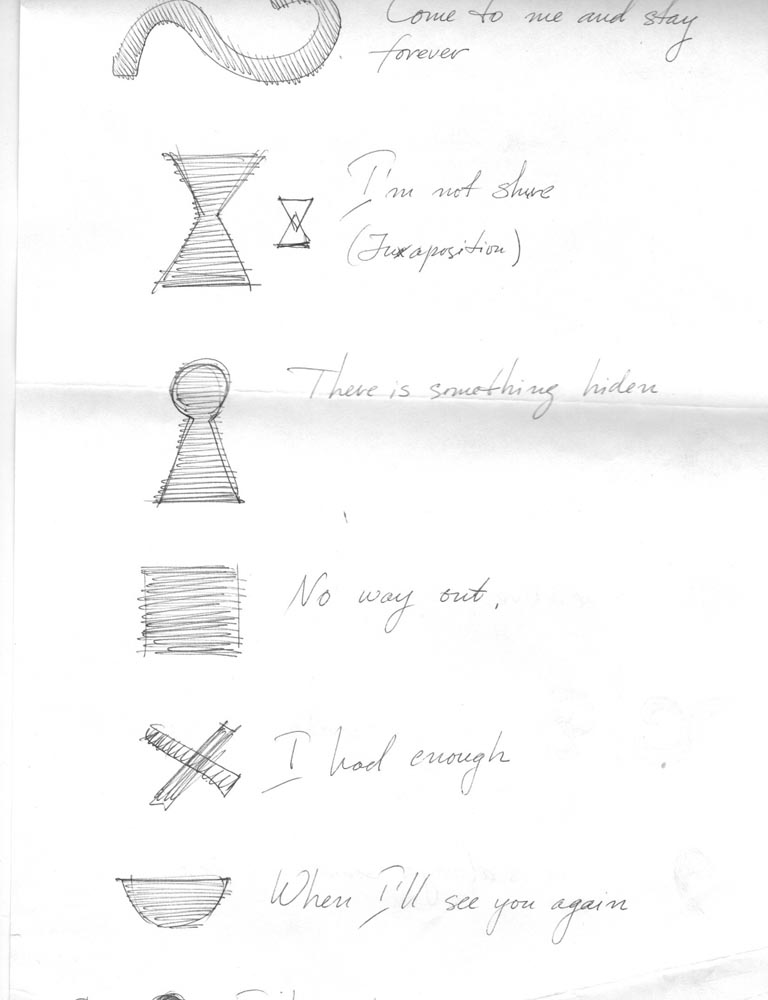 Come to me and stay
forever
I'm not shure
(Juxaposition)
There is something hiden
No way out,
I had enough
When I'll see you again